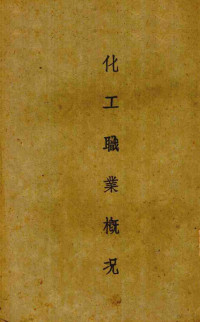 化工職業概況